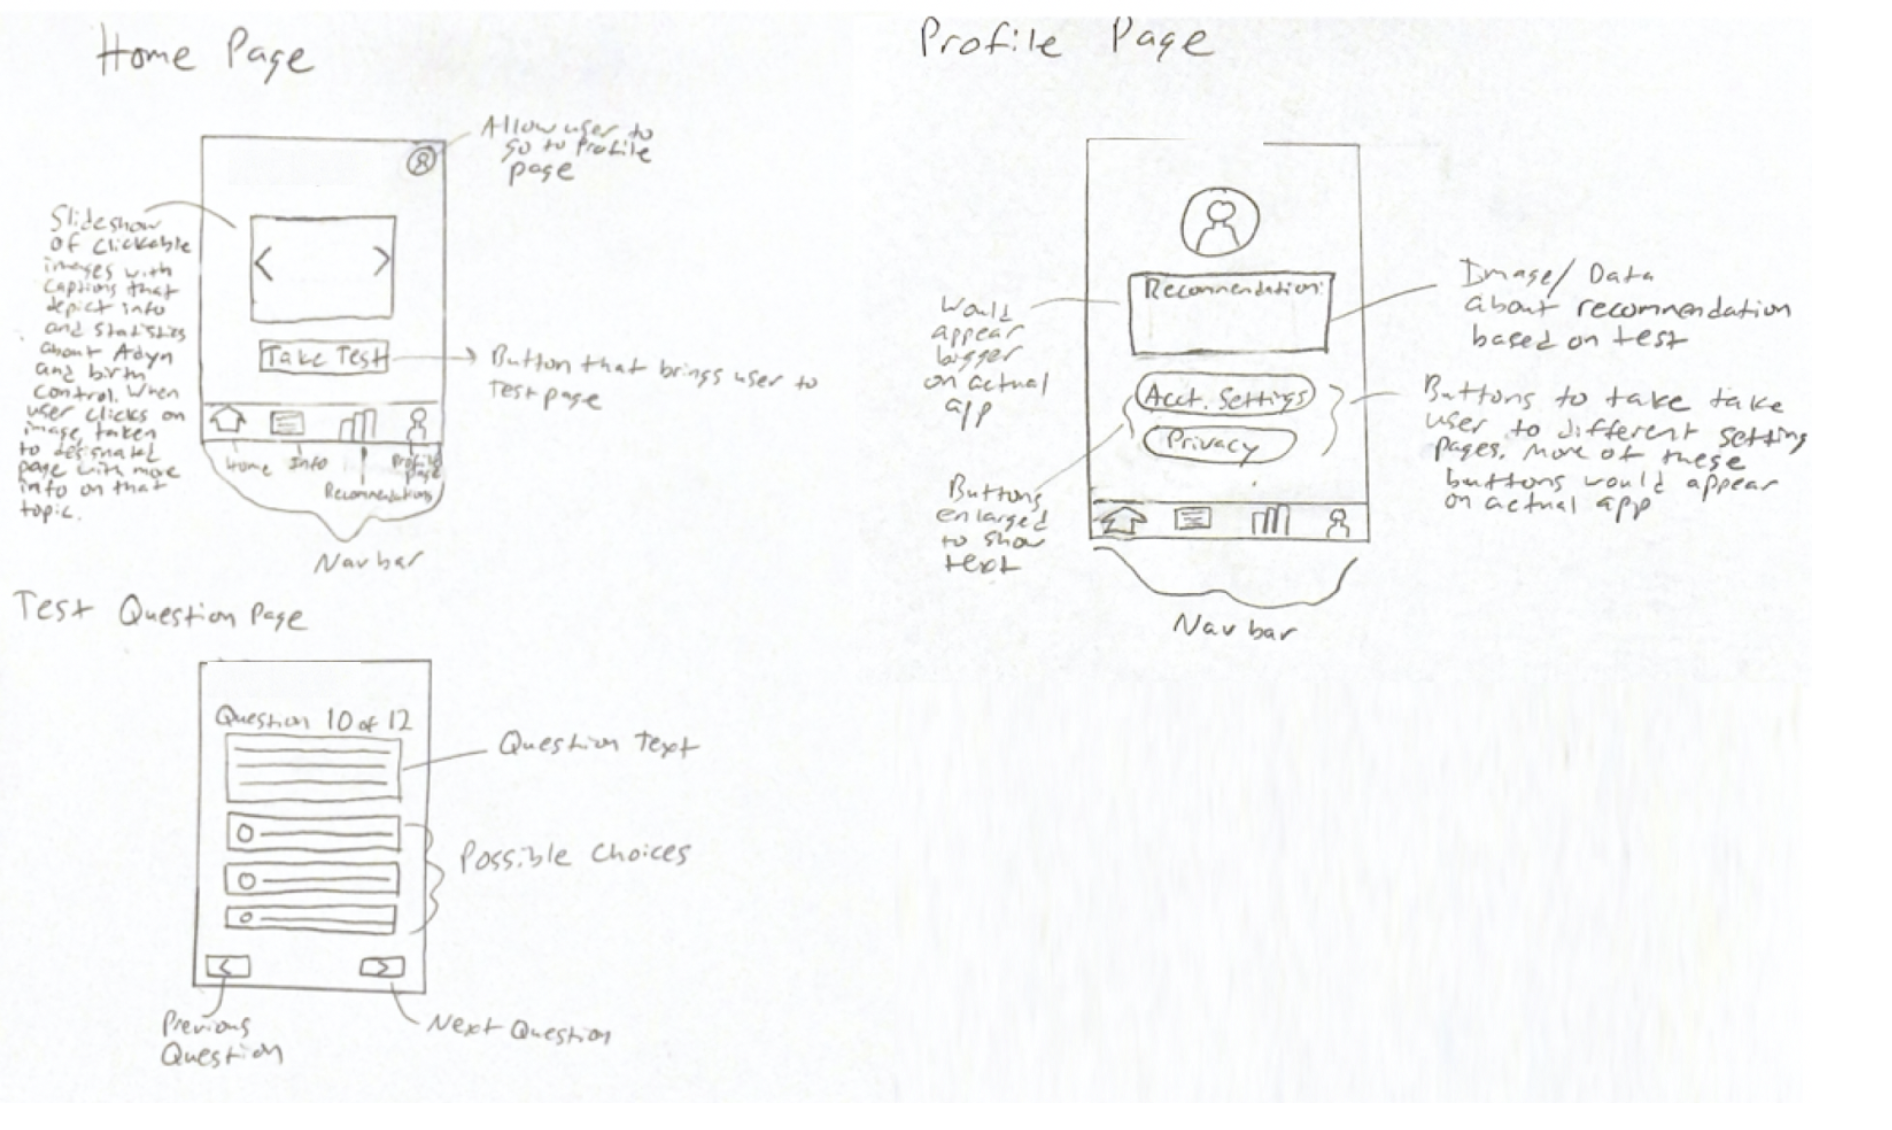 Home Page
Allow user to
go to Profile
page
Slideshow
of clickable
images with
captions that
depict info
and statistics
about Adyn
and birth
control. When
user clicks on
image, taken
to designated
page with more
info on that
topic.
Take Test
Button that brings user to
Test page
Home
Info
Recommendations
Profile
page
Navbar
Test Question Page
Question 10 of 12
Question Text
Possible Choices
Previous
Question
Next Question
Profile Page
Recommendation:
Image/ Data
about recommendation
based on test
Would
appear
bigger
on actual
app
Acct. Settings
Privacy
Buttons to take take
user to different setting
pages. More of these
buttons would appear
on actual app
Buttons
enlarged
to show
text
Navbar